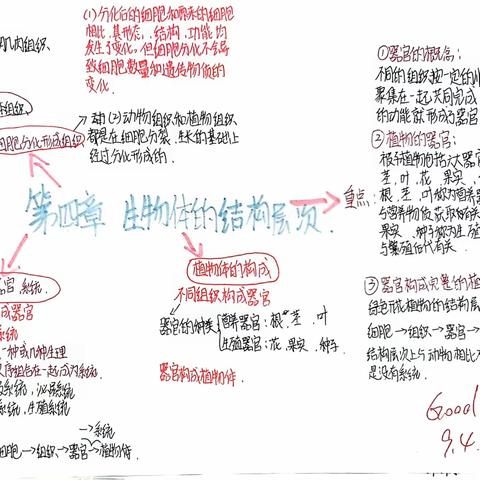 肌肉组织、
(1)分化后的细胞和原来的细胞
相比,其形态、结构、功能均
发生了变化。但细胞分化不会导
致细胞数量和遗传物质的
变化.
组织、
细胞分化形成组织
(2)动物组织和植物组织
都是在细胞分裂、生长的基础上
经过分化形成的.
第四章 生物体的结构层次.
重点:
①器官的概念:
不同的组织按一定的
聚集在一起共同完成
的功能就形成器官
②植物的器官:
植物包括六大器官
茎,叶,花,果实,
根、茎、叶
与营养物质
果实、种子
与繁殖后代有关.
③器官构成完整的植
绿色开花植物的结构层
细胞→组织→器官→
结构层次上与动物相比
是没有系统.
Good
9.4.
植物体的构成
不同组织构成器官
器官的种类
营养器官:根、茎、叶
生殖器官:花、果实、种子
器官构成植物体.
器官 系统.
成器官
系统
一种或几种生理
次序组合在一起成为系统.
系统,泌尿系统
系统,生殖系统
→系统
细胞→组织→器官→植物体